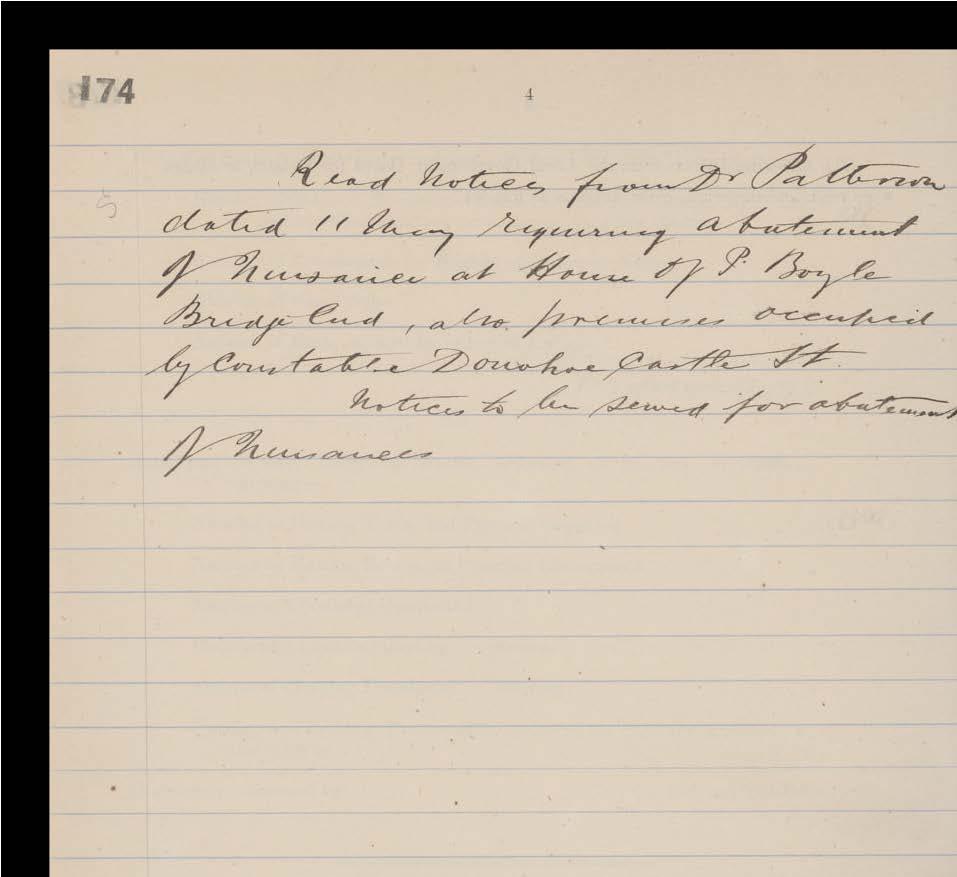 174
4
5
Read Notices from Dr Patterson
dated 11 May requiring abatement
of Nuisances at House of P. Boyle
Bridge End, also premises occupied
by Constable Donohoe Castle St.
Notices to be served for abatement
of Nuisances